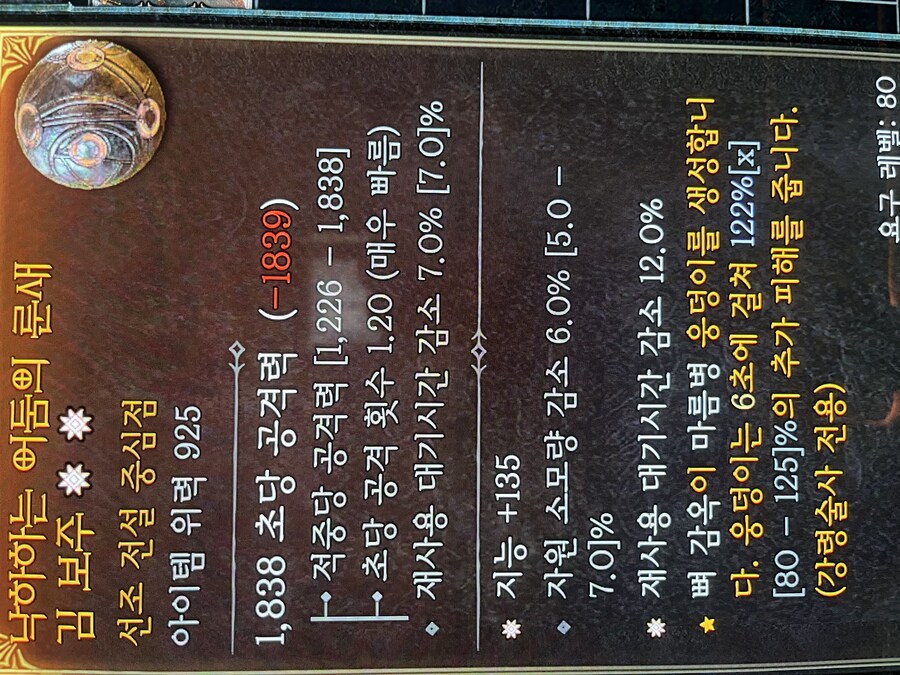 낙하하는 어둠의 룬새
김 보주
선조 전설 중심점
아이템 위력 925
1,838 초당 공격력 (-1839)
적중당 공격력 [1,226 - 1,838]
초당 공격 횟수 1.20 (매우 빠름)
재사용 대기시간 감소 7.0% [7.0]%
지능 +135
자원 소모량 감소 6.0% [5.0 -
7.0]%
재사용 대기시간 감소 12.0%
뼈 감옥이 마름병 웅덩이를 생성합니
다. 웅덩이는 6초에 걸쳐 122%[x]
[80 - 125]%의 추가 피해를 줍니다.
(강령술사 전용)
요구 레벨: 80